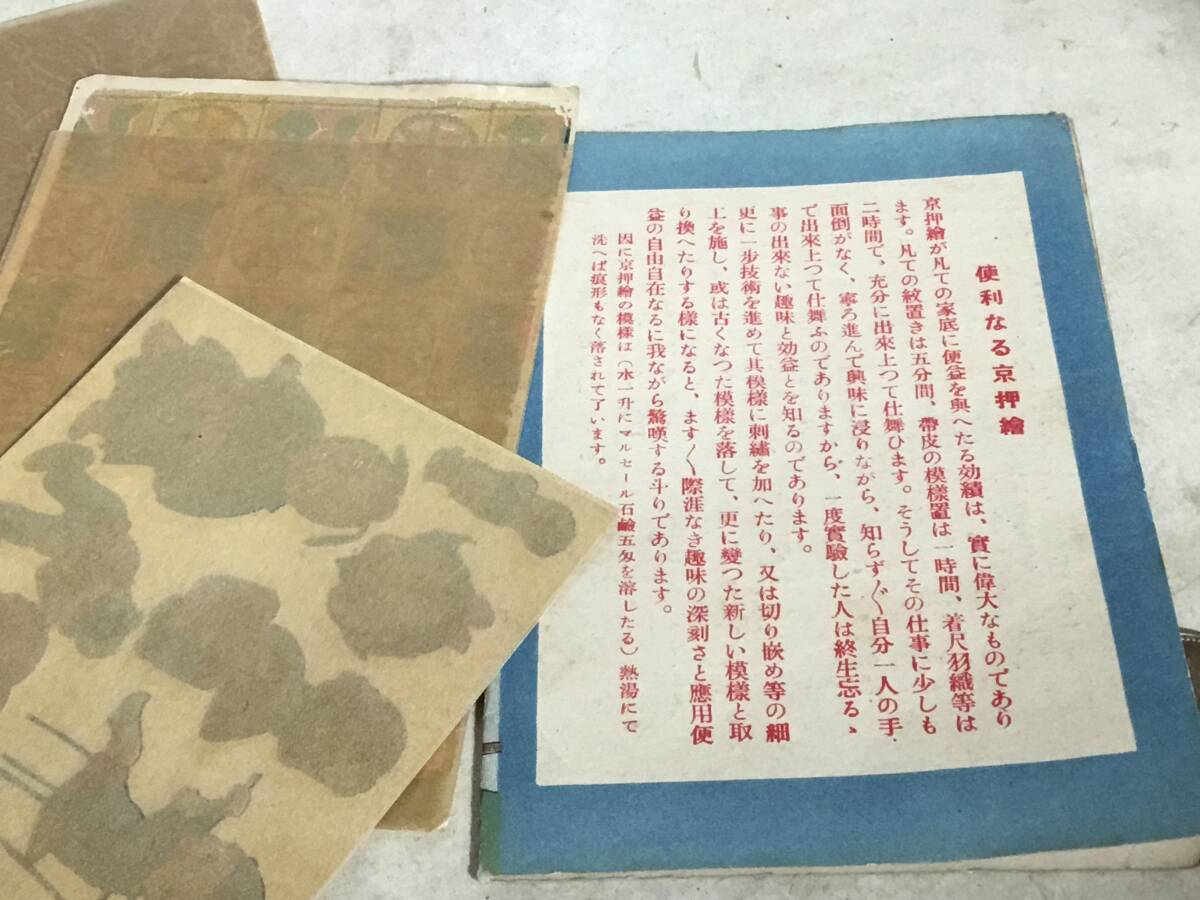 便利なる京押繪
京押繪が凡ての家底に便益を與へたる効績は、實に偉大なものであり
ます。凡ての紋置きは五分間、帶皮の模樣置は一時間、着尺羽織等は
二時間で、充分に出來上つて仕舞ひます。そうしてその仕事に少しも
面倒がなく、寧ろ進んで興味に浸りながら、知らずぐ〱自分一人の手
で出來上つて仕舞ふのでありますから、一度實驗した人は終生忘る、
事の出來ない趣味と効益とを知るのであります。
更に一步技術を進めて其模樣に刺繡を加へたり、又は切り嵌め等の細
工を施し、或は古くなつた模樣を落して、更に變つた新しい模樣と取
り換へたりする樣になると、ます〱際涯なき趣味の深刻さと應用便
益の自由自在なるに我ながら驚嘆する斗りであります。
因に京押繪の模樣は(水一升にマルセール石鹼五匁を溶したる)熱湯にて
洗へば痕形もなく落されて了います。